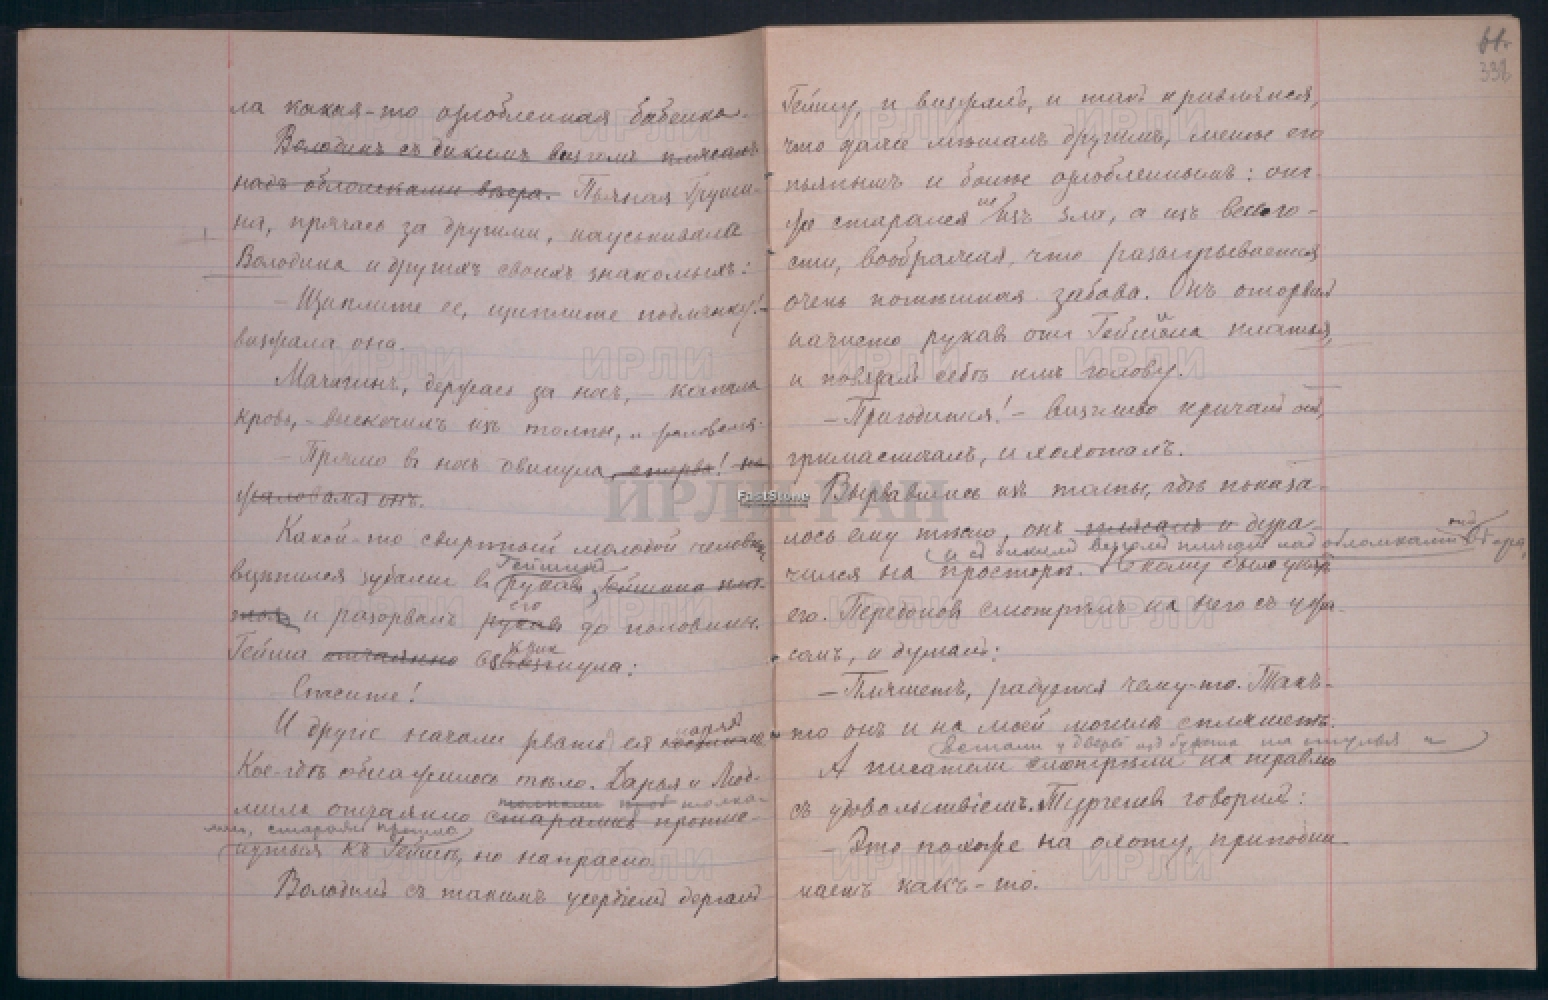 ла какая-то озлобленная бабенка.
Володинъ съ дикимъ визгомъ плясалъ
надъ обломками веера. Пьяная Груши-
на, прячась за другими, науськивала
Володина и другихъ своихъ знакомыхъ:
— Щиплите ее, щиплите подлянку! —
визжала она.
Мачигинъ, держась за носъ, — капала
кровь, — выскочилъ изъ толпы, и жаловался:
— Прямо въ носъ двинула, стерва! на
жаловался онъ.
Какой-то свирѣпый молодой человѣкъ
Гейшинъ
вцѣпился зубами въ рукавъ, Гейшина пла-
тья и разорвалъ рукавъ до половины.
его
крик
Гейша отчаянно взвизгнула:
— Спасите!
И другіе начали рвать ея
нарядъ
Кое-гдѣ обнажилось тѣло. Дарья и Люд-
толкали толка-
мила отчаянно старались протис-
лись, стараясь
нуться къ Гейшѣ, но напрасно.
Володинъ съ такимъ усердіемъ дергалъ
332
Гейшу, и визжалъ, и такъ кривлялся,
что даже мѣшалъ другимъ, менѣе его
пьянымъ и болѣе озлобленнымъ: онъ-
не
же старался изъ зла, а изъ весело-
сти, воображая, что разыгрывается
очень потѣшная забава. Онъ оторвалъ
начисто рукавъ отъ Гейшина платья,
и повязалъ себѣ имъ голову.
— Пригодится! — визгливо кричалъ онъ,
гримасничалъ, и хохоталъ.
Выбравшись изъ толпы, гдѣ показа-
лось ему тѣсно, онъ плясалъ и дура-
и съ дикимъ визгомъ плясалъ надъ обломками отъ вѣера,
чился на просторѣ. Некому было унять
его. Передоновъ смотрѣлъ на него съ ужа-
сомъ, и думалъ:
— Пляшетъ, радуется чему-то. Такъ-
то онъ и на моей могилѣ спляшетъ.
встали у дверей изъ буфета на стулья и
А писатели смотрѣли на травлю
съ удовольствіемъ. Тургеневъ говорилъ:
— Это похоже на охоту, приподни-
маетъ какъ-то.
ИРЛИ РАН
FastStone
ИРЛИ